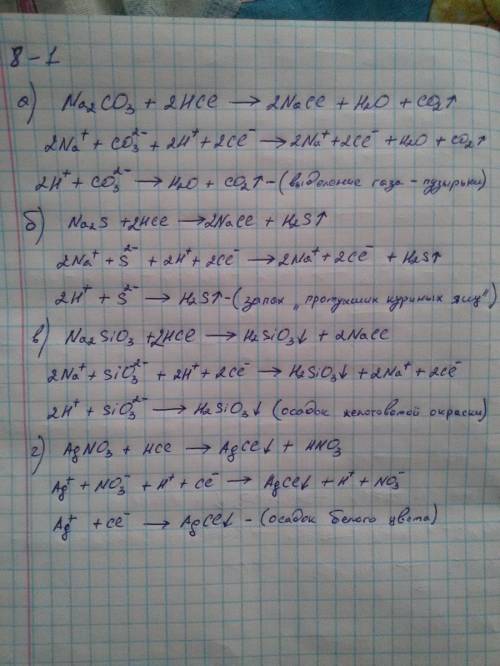 8-1
а) Na₂CO₃ + 2HCl → 2NaCl + H₂O + CO₂↑
2Na⁺ + CO₃²⁻ + 2H⁺ + 2Cl⁻ → 2Na⁺ + 2Cl⁻ + H₂O + CO₂↑
2H⁺ + CO₃²⁻ → H₂O + CO₂↑ - (выделение газа - пузырьки)
б) Na₂S + 2HCl → 2NaCl + H₂S↑
2Na⁺ + S²⁻ + 2H⁺ + 2Cl⁻ → 2Na⁺ + 2Cl⁻ + H₂S↑
2H⁺ + S²⁻ → H₂S↑ - (запах „протухших куриных яиц")
в) Na₂SiO₃ + 2HCl → H₂SiO₃↓ + 2NaCl
2Na⁺ + SiO₃²⁻ + 2H⁺ + 2Cl⁻ → H₂SiO₃↓ + 2Na⁺ + 2Cl⁻
2H⁺ + SiO₃²⁻ → H₂SiO₃↓ (осадок окраски)
г) AgNO₃ + HCl → AgCl↓ + HNO₃
Ag⁺ + NO₃⁻ + H⁺ + Cl⁻ → AgCl↓ + H⁺ + NO₃⁻
Ag⁺ + Cl⁻ → AgCl↓ - (осадок белого цвета)